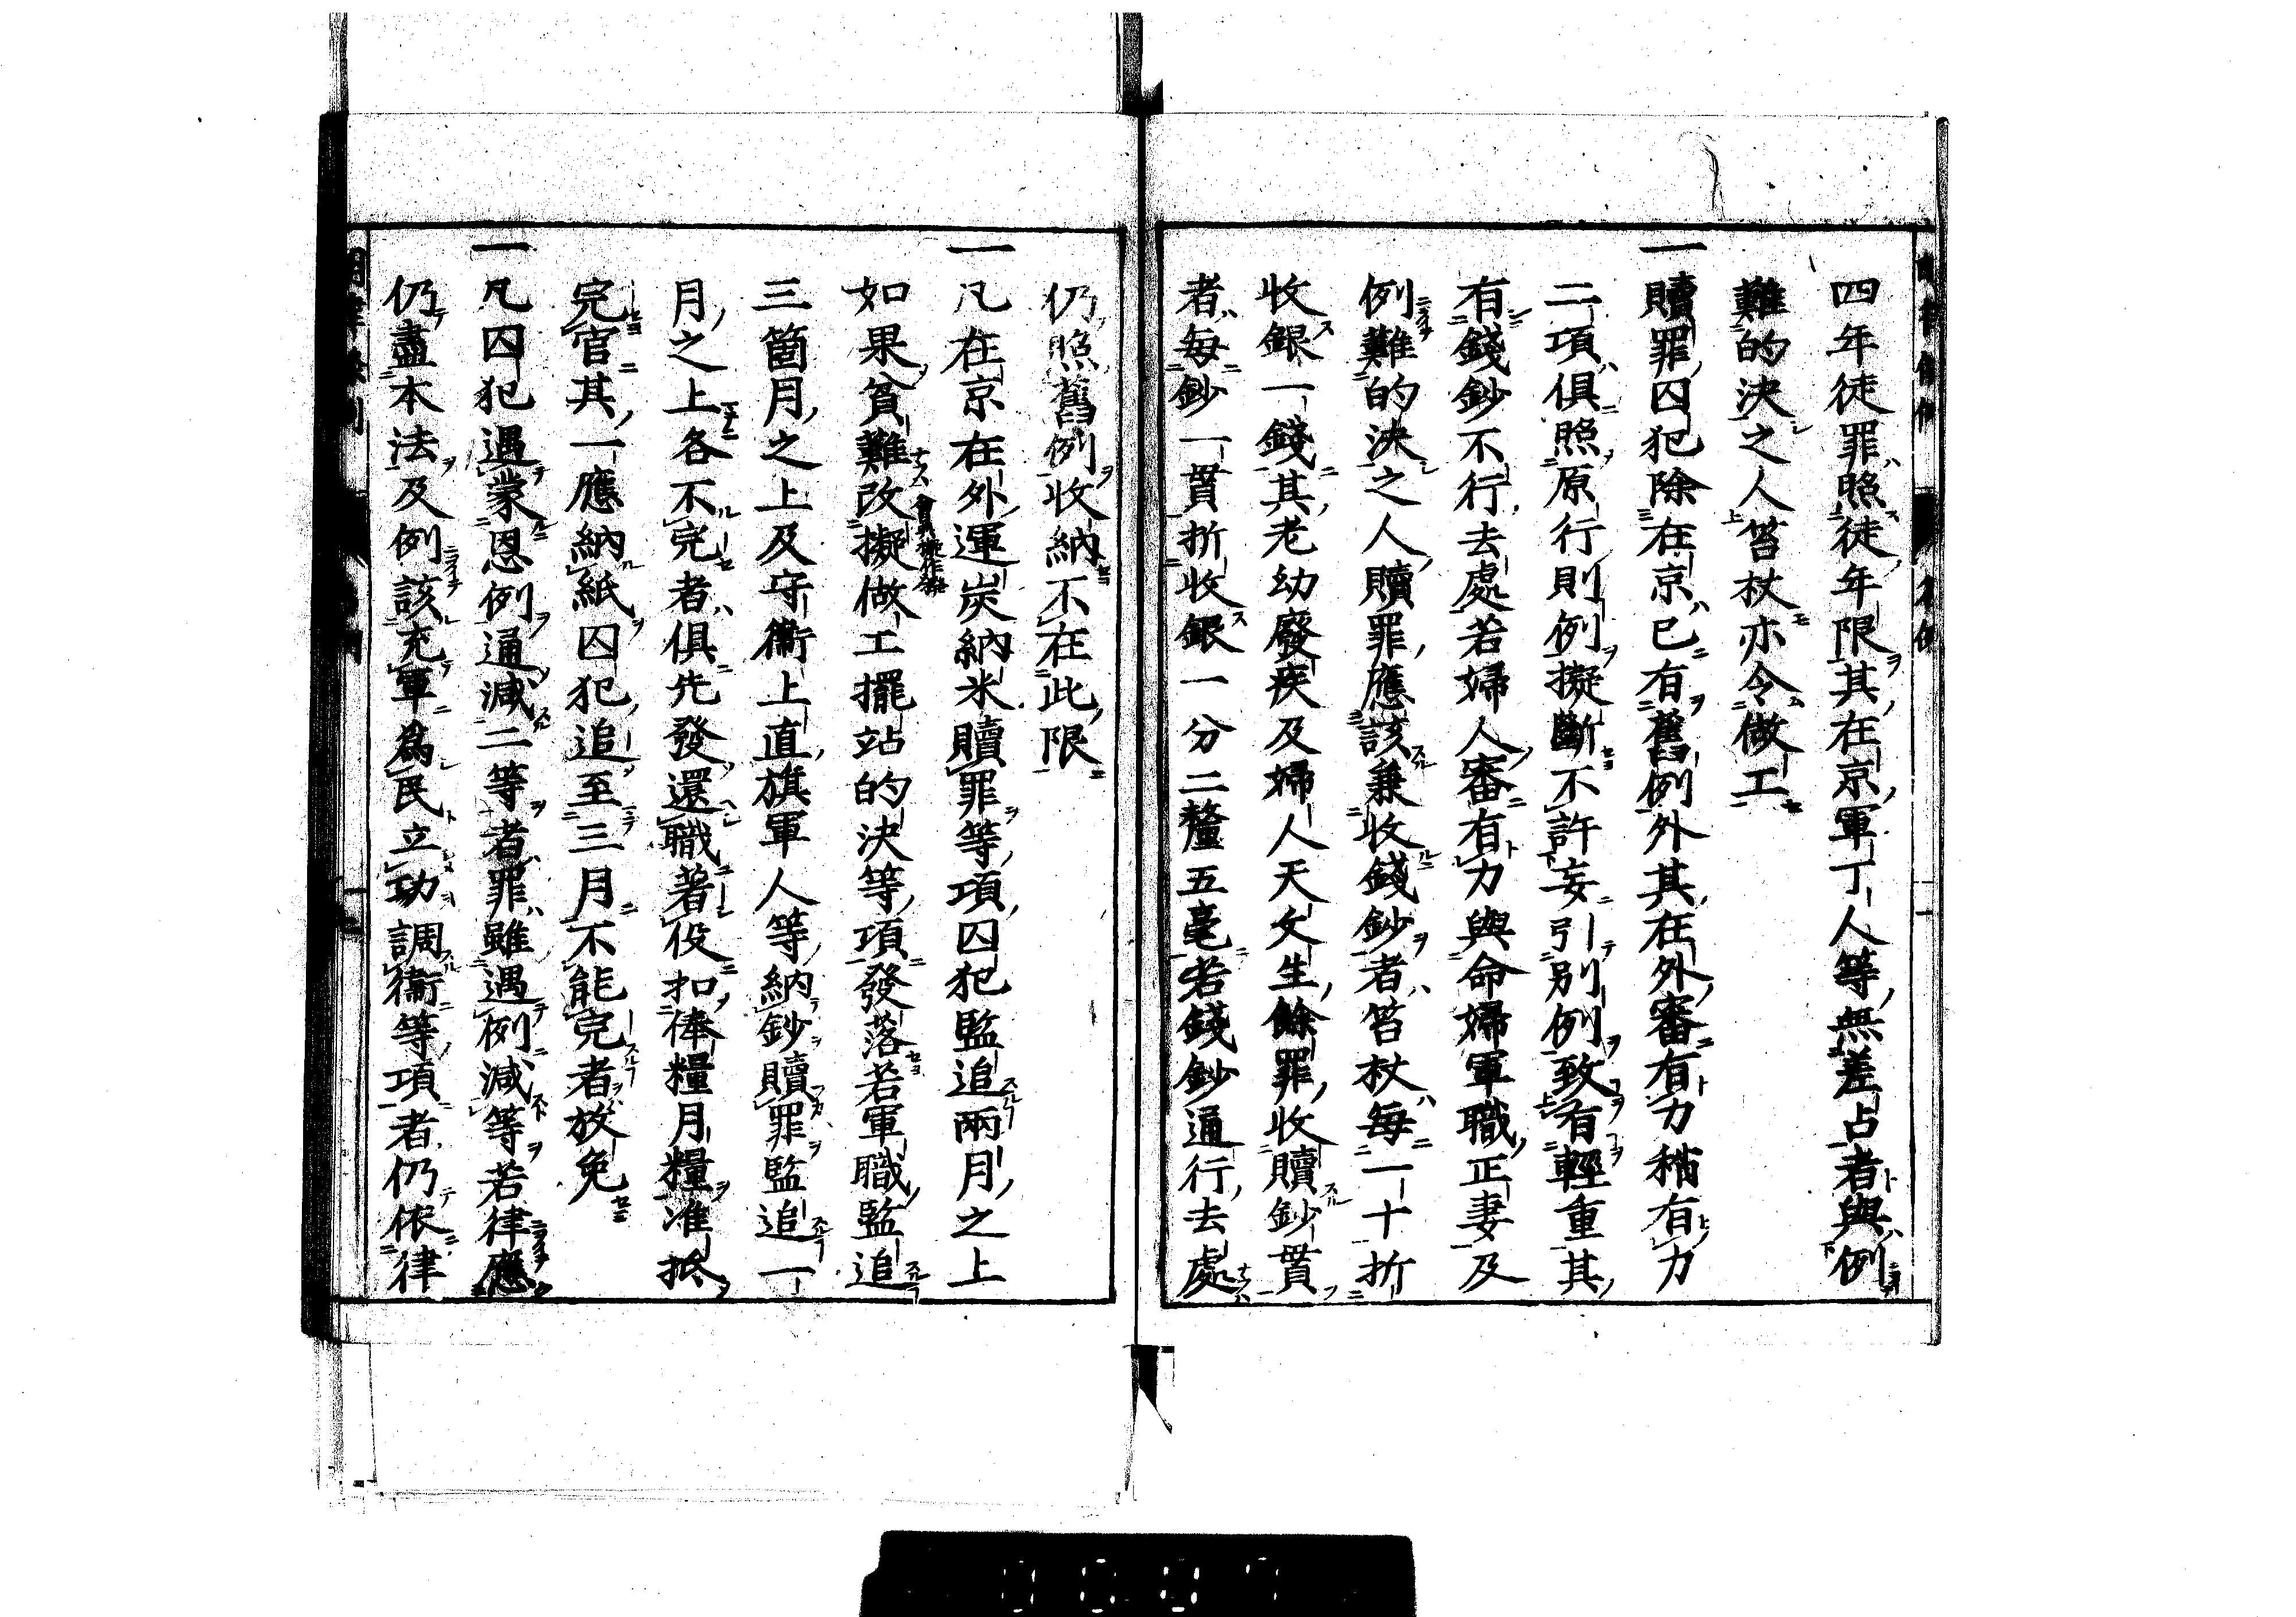 四年徒罪照徒年限其在京軍丁人等無差占者與例
難的決之人笞杖亦令做工
一贖罪囚犯除在京已有舊例外其在外審有力稍有力
二項俱照原行則例擬斷不許妄引別例致有輕重其
有錢鈔不行去處若婦人審有力與命婦軍職正妻及
例難的決之人贖罪應該兼收錢鈔者笞杖每一十折
收銀一錢其老幼廢疾及婦人天文生餘罪收贖鈔貫
者每鈔一貫折收銀一分二釐五毫若錢鈔通行去處
仍照舊例收納不在此限
一凡在京在外運炭納米贖罪等項囚犯監追兩月之上
如果貧難改擬做工擺站的決等項發落若軍職監追
三箇月之上及守衞上直旗軍人等納鈔贖罪監追一
月之上各不完者俱先發還職著役扣俸糧月糧准抵
完官其一應納紙囚犯追至三月不能完者放免
一凡囚犯遇蒙恩例通減二等者罪雖遇例減等若律應
仍盡本法及例該充軍為民立功調衞等項者仍依律